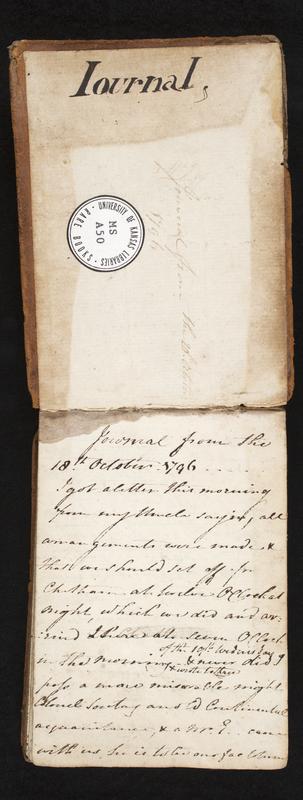 Journal,
UNIVERSITY OF KANSAS LIBRARIES
MS
A50
RARE BOOKS
Journal from the
1796
Journal from the
18th October 1796
I got a letter this morning
from my Uncle saying, all
arrangements were made &
that we should set off for
Chatham at twelve O'Clock at
night, which we did and ar-
rived there at seven O'Clock
of the 19th Wednesday
in the morning & never did I
pass a more miserable night
& a Mr. E. came
with us he is to be our